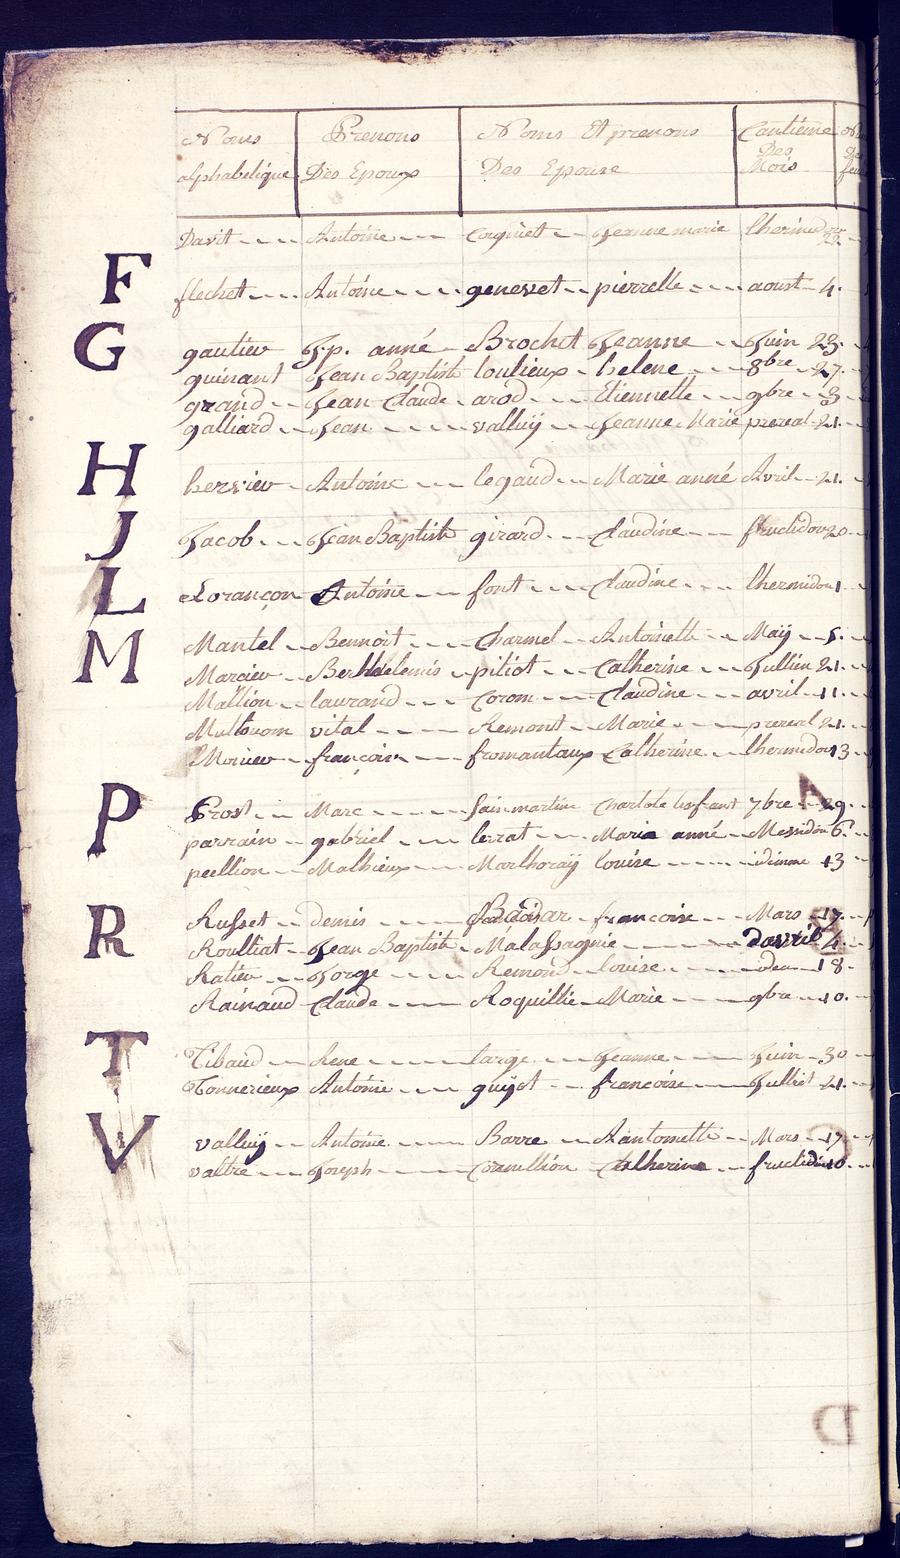 Noms Prenons Noms Et prenons Cantième
Des
alphabétique Des Epoux Des Epouse Mois
Davit Antoine Coignet Jeanne marie
F
flechet Antoine genevet pierrette aoust 4
G
gautier J.p. anné Brochet Jeanne Juin 23
guinant Jean Baptiste loulieux helene 8bre 27
grand Jean Claude arod Etiennette 9bre 3
galliard Jean valluÿ Jeanne Marie prereal 21
H
hervier Antoine legaud Marie anné Avril 21
J
Jacob Jean Baptiste girard Claudine fructidor 20
L
Lorançon Antoine font Claudine thermidor 1
M
Mantel Bennoit Charmel Antoinette Maÿ 5
Marcier piliot Catherine Jullin 21
Mallion laurand Corom Claudine avril 11
vital Remont Marie prereal 21
Morier françois fromantaux Catherine thermidor 13
P
Prost Marc Sainmartin Charlote 7bre 29
parrain gabriel lerrat Maria anné Messidor 6
peellion Mathieux Marthoraÿ louise 13
R
Russet denis francoise Mars 17
Roulliat Jean Baptiste Malassagnie davril 4
Ratier Jorge Remond louise 18
Rainaud Claude Roquillie Marie 9bre 10
T
Tibaud Rene large Jeanne Juin 30
Tonnerieux Antoine guyot francoise Julliet 21
V
valluÿ Antoine Barre Aantoinette Mars 17
valtre Joseph Coeullion Catherine fructidor 10